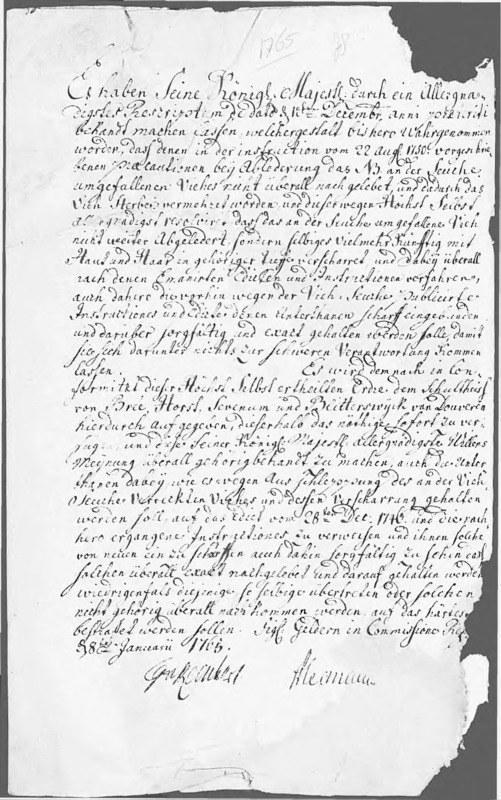 1765
Es haben Seine Königl. Majestt. durch ein Allergnä-
digstes Rescriptum de dato d 12ten Decembr. anni
bekandt machen lassen, welchergestalt bishero wahrgenommen
worden, dass denen in der instruction vom 22 Aug. 1750. vorgeschrie
benen Praecautionen bey Abledrung das NB an der Seuche
umgefallenen Viehes nicht überall nachgelebet, und dadurch das
Vieh Sterben vermehret worden und dieserwegen Höchst Selbst
allergnädigst resolviret, dass das an der Seuche umgefallene Vieh
nicht weiter Abgeledert, sondern selbiges vielmehr künfftig mit
Haut und Haar in gehöriger tieffe verscharret und dabey überall
nach denen Emanirten Edicten und Instructionen verfahren,
auch dahero die vorhin wegen der Vieh Seuche Publicirte
Instructiones und Edicte denen Unterthanen scharf eingebunden
und darüber sorgfältig und exact gehalten werden solle, damit
sie sich darunter nichts zur schweren Verantwortung kommen
lassen. Es wird demnach in Con-
formität dieser Höchst Selbst ertheilten Ordre dem Schultheis
von Bree, Horst, Sevenum und van Douveren
hierdurch auf gegeben, dieserhalb das nöthige sofort zu ver-
fügen, und diese Seiner Königl. Majestt. allergnädigste Willens
Meynung überall gehörig bekandt zu machen, auch die Unter
thanen dabey wie es wegen Aus schleppung des an der Vieh
Seuche Verreckten Viehes und dessen Verscharrung gehalten
werden soll, auf das Edict vom 28ten Dec. 1746. und die nach
hero ergangene Instructiones zu verweisen und ihnen solche
von neuen ein zu schärffen auch dahin sorgfältig zu sehen, dass
solchen überall exact nachgelebet und darauf gehalten werde
wiedrigenfals diejenige so selbige übertreten oder solchen
nicht gehörig überall nach kommen werden, auf das härteste
bestrafet werden sollen. Sigl. Geldern in Commissione
d 8ten Januarii 1765.